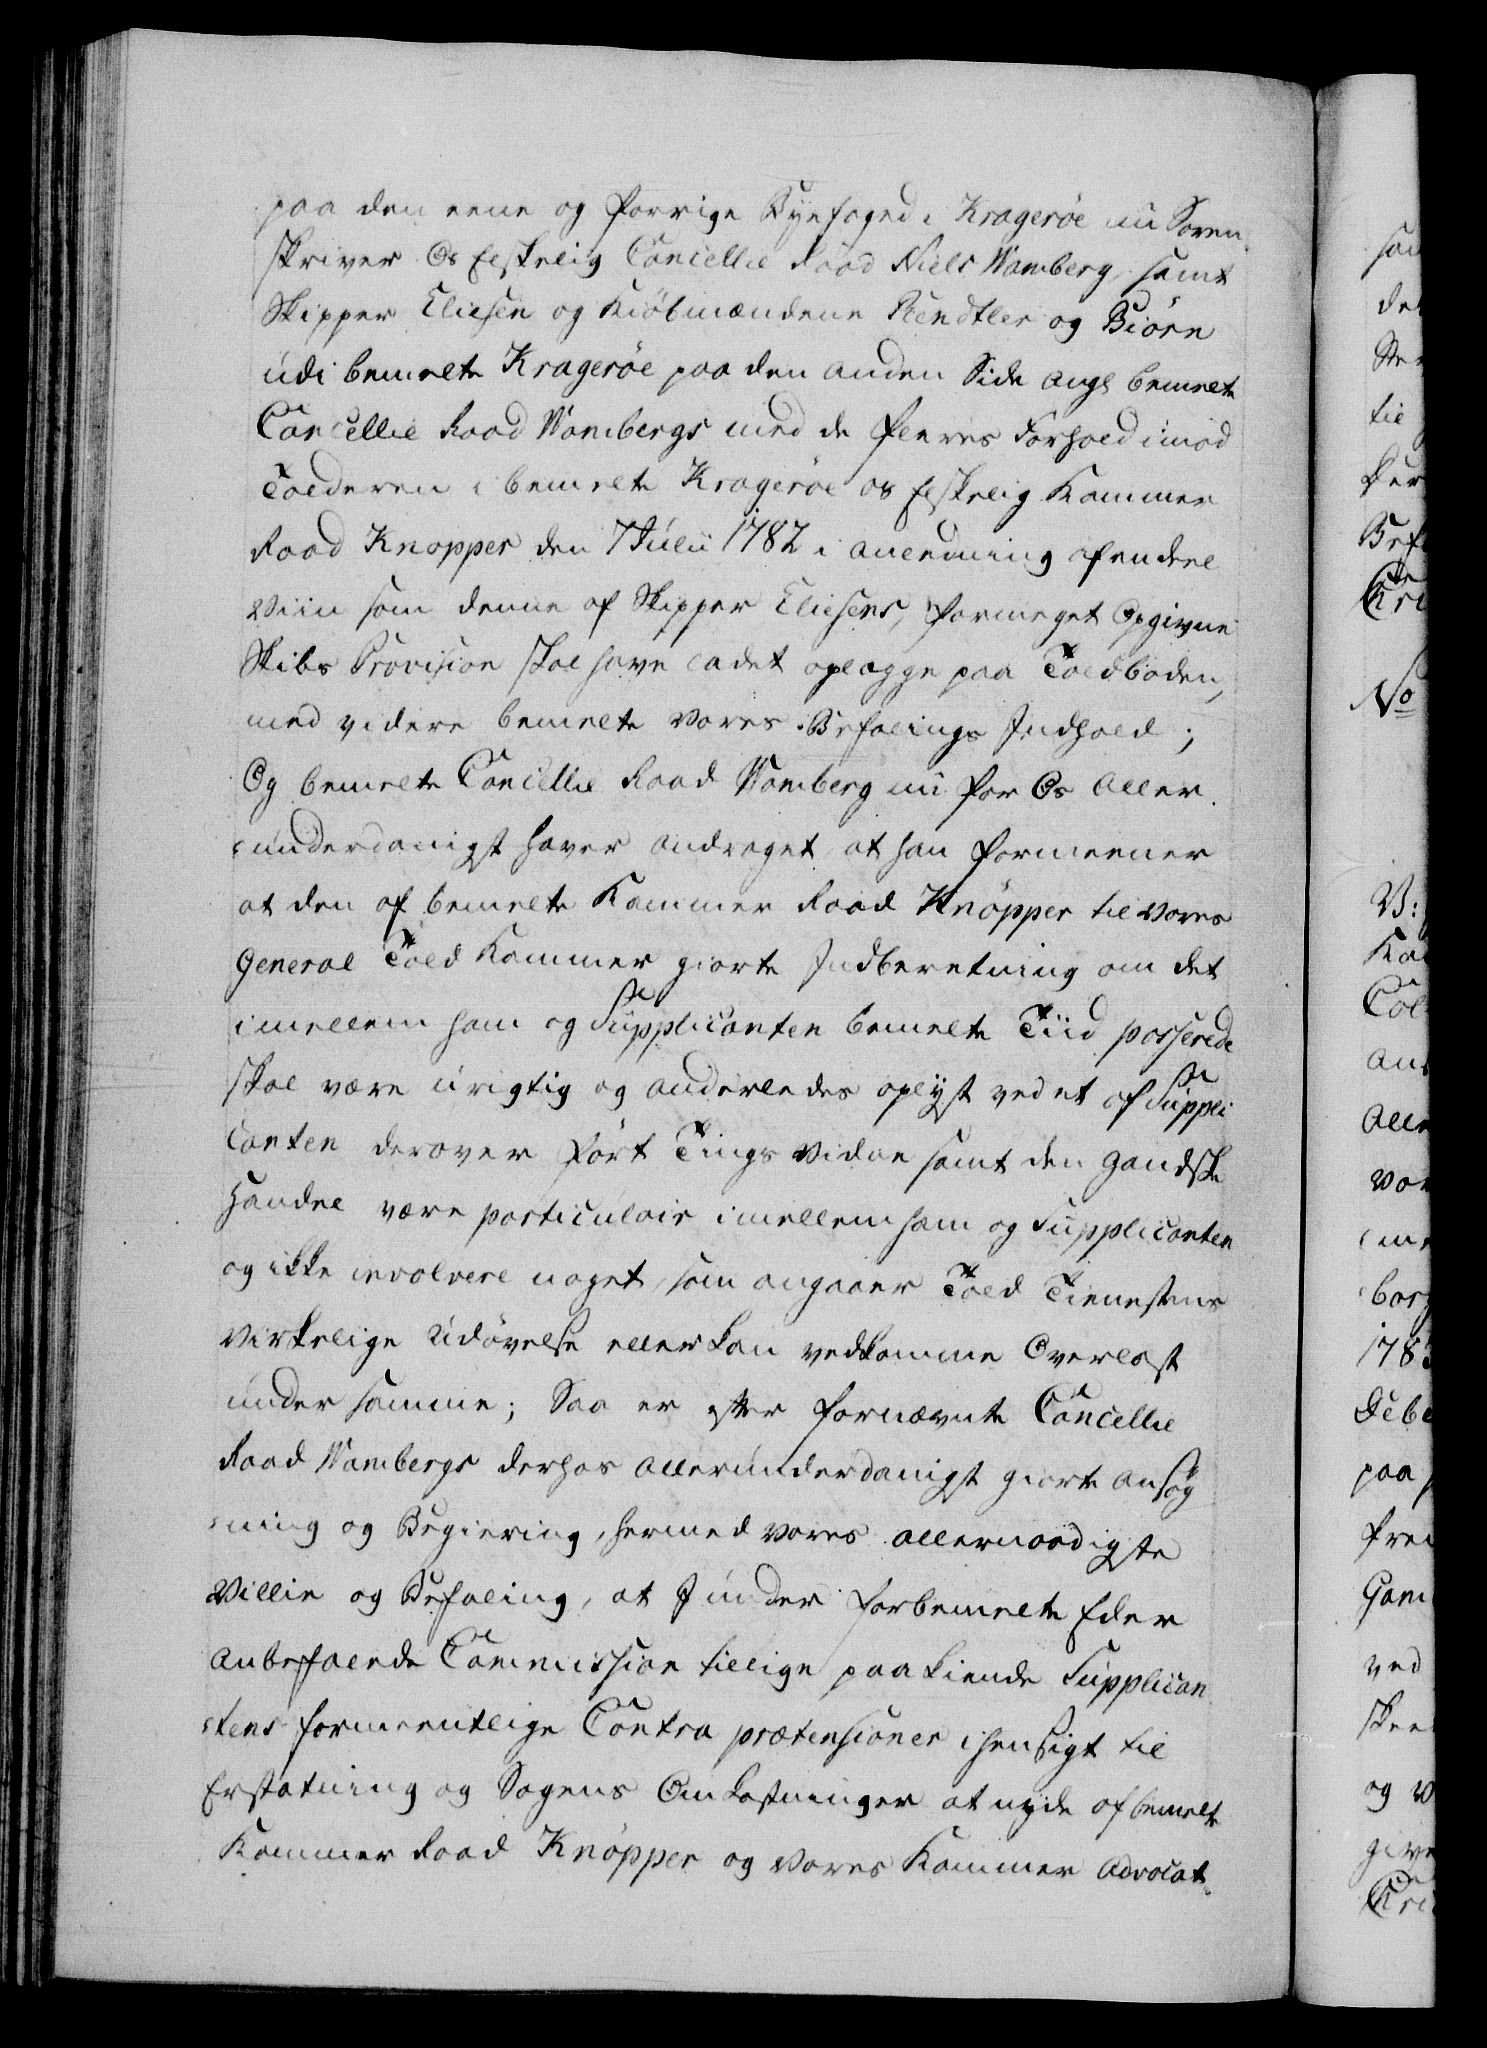 paa den eene og forrige Byefoged i Kragerøe nu Soren
skriver Os Elskelig Cancellie Raad Niels Wamberg, samt
Skipper Eliesen og Kiøbmændene Rendtler og Biørn
udi bemelte Kragerøe paa den anden Side ang: bemelte
Cancellie Raad Wambergs med de fleeres Forhold imod
Tolderen i bemelte Kragerøe os Elskelig Kammer
Raad Knopper den 7 Julii 1782 i anledning af en deel
Viin som denne af Skipper Eliesens, formeget Opgivne
Skibs Provision skal have ladet oplægge paa Toldboden,
med videre bemelte Vores Befalings Indhold;
Og bemelte Cancellie Raad Wamberg nu for Os Aller
underdanigst haver andraget at han formeener
at den af bemelte Kammer Raad Knøpper til Vores
General Told Kammer giorte Indberetning om det
imellem ham og Supplicanten bemelte Tiid passerede
skal være urigtig og anderledes oplyst ved et af Suppli
canten derover ført Tings Vidne samt den gandske
Handel være particulair imellem ham og Supplicanten
og ikke involvere noget, som angaaer Told Tienestens
virkelige Udøvelse eller kan vedkomme Overlast
under samme; Saa er efter fornævnte Cancellie
Raad Wambergs derhos allerunderdanigst giorte Ansøg
ning og Begiering, hermed Vores allernaadigste
Villie og Befaling, at I under forbemelte Eder
anbefalede Commission tillige paakiende Supplican
tens formeentlige Contra prætensioner i henseigt til
Erstatning og Sagens Omkostninger at nyde af bemelte
Kammer Raad Knøpper og Vores Kammer Advocat